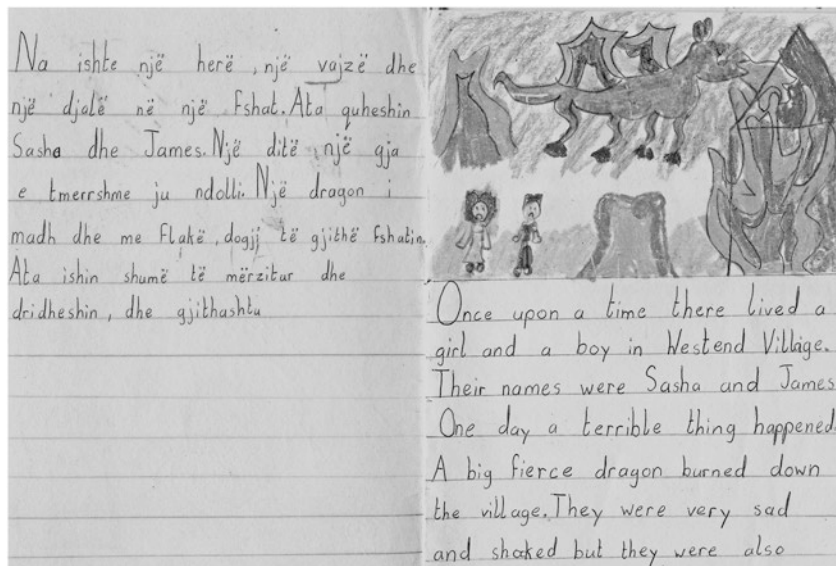 Na ishte një herë, një vajzë dhe
një djalë në një fshat. Ata quheshin
Sasha dhe James. Një ditë një gja
e tmerrshme ju ndolli. Një dragon i
madh dhe me flakë, dogji të gjithë fshatin.
Ata ishin shumë të mërzitur dhe
dridheshin, dhe gjithashtu
Once upon a time there lived a
girl and a boy in Westend Village.
Their names were Sasha and James
One day a terrible thing happened.
A big fierce dragon burned down
the village. They were very sad
and shaked but they were also